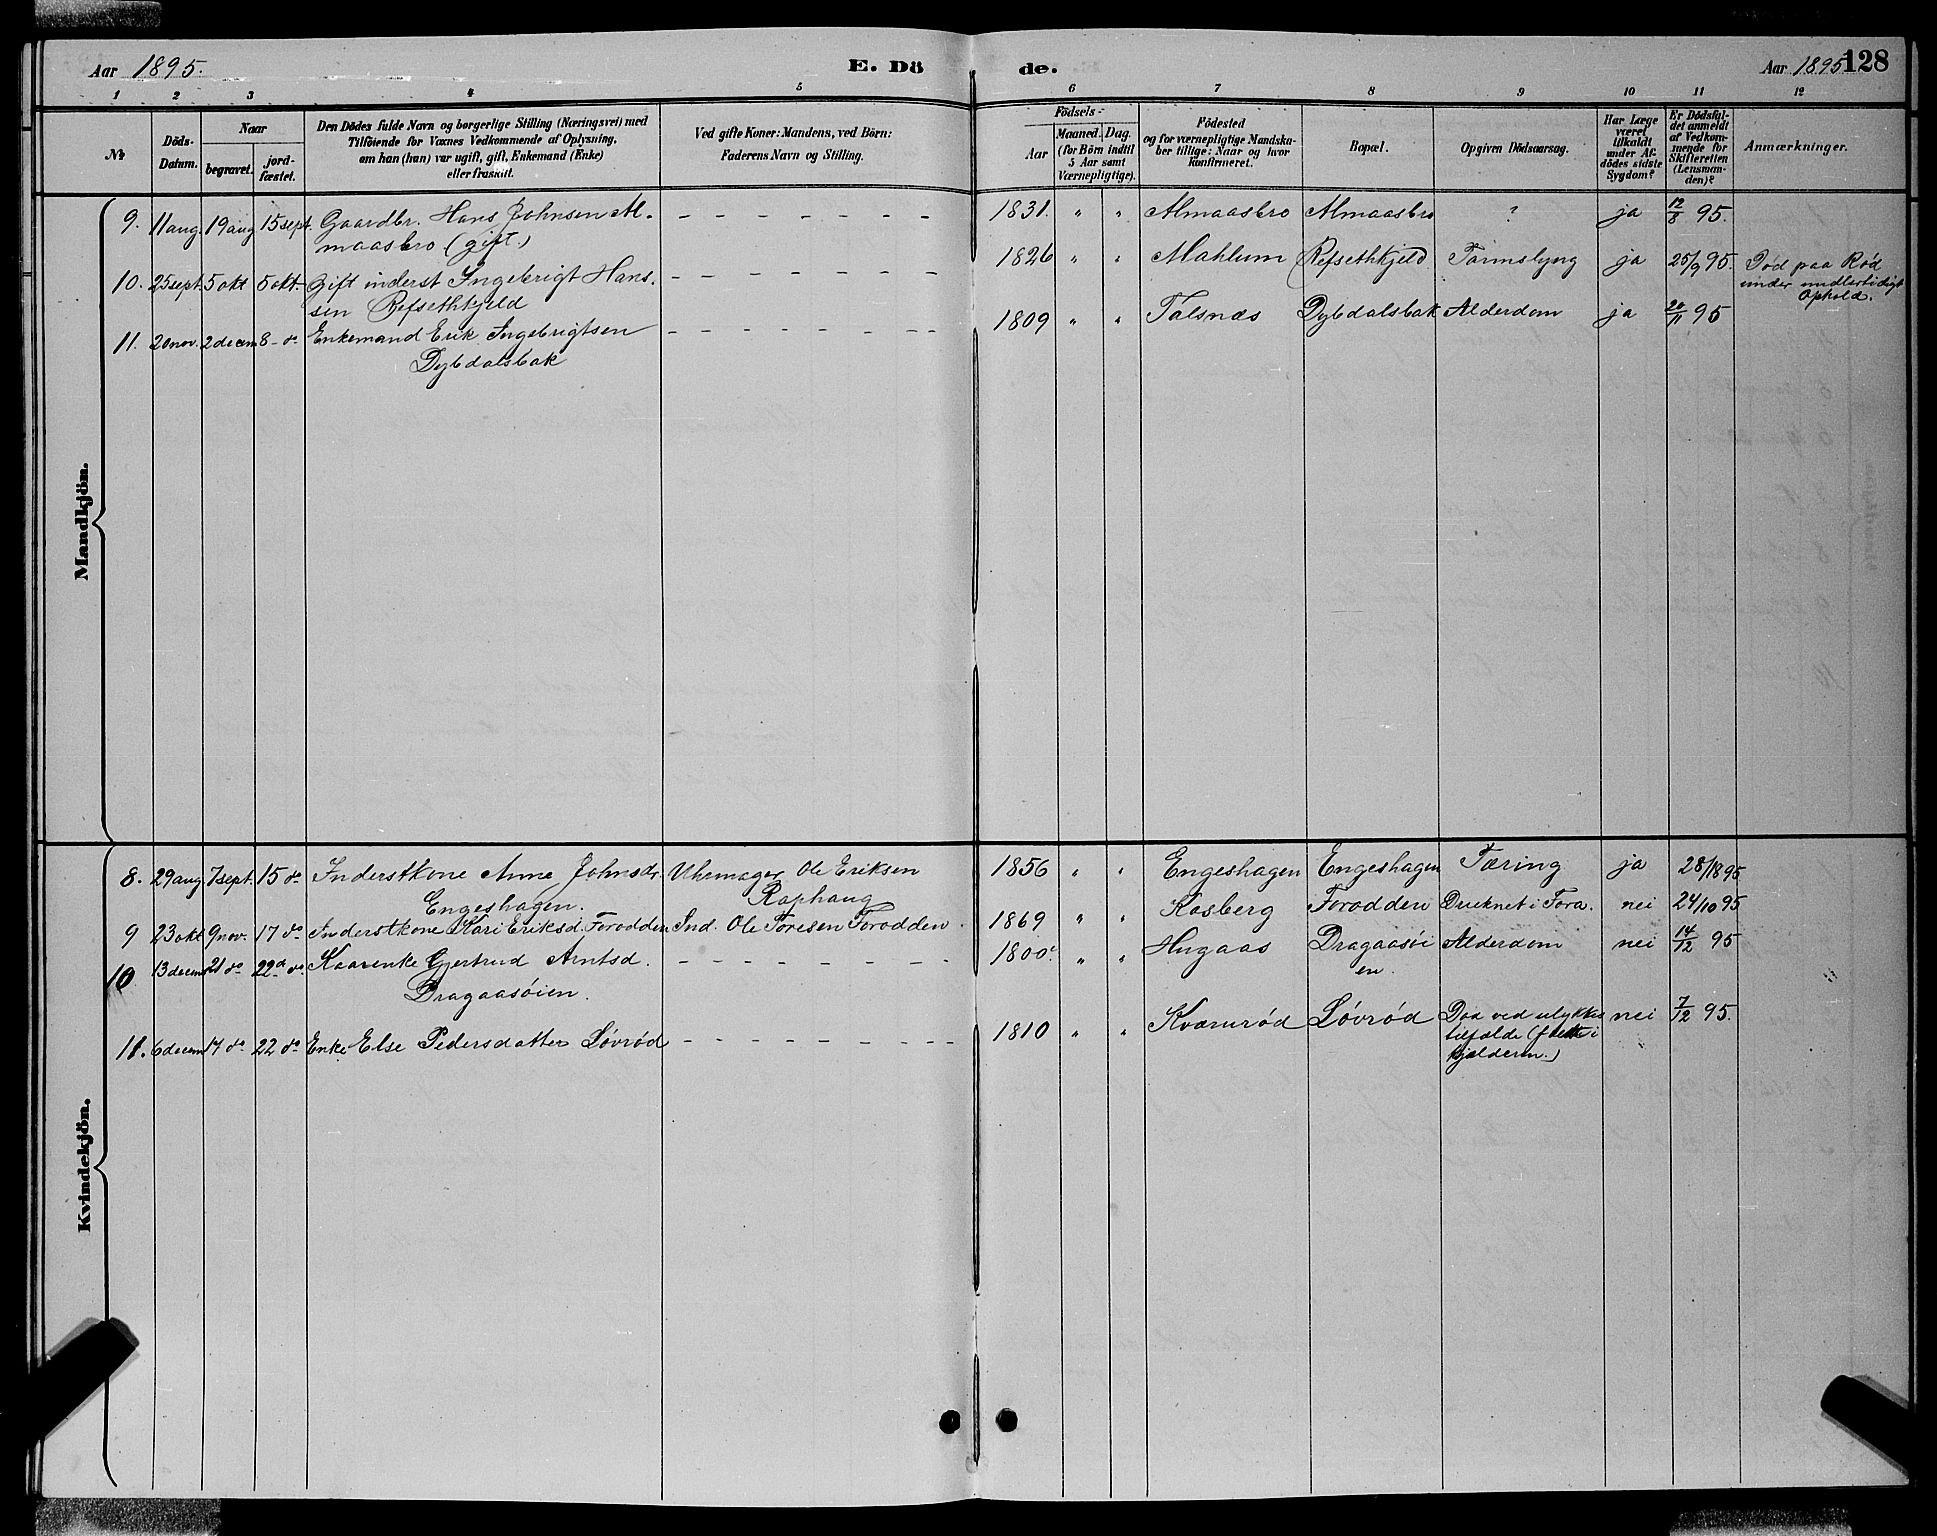 Aar 1895. E. Dö de. Aar 1895 128
1 2 3 4 5 6 7 8 9 10 11 12
№
Döds-
Datum.
Naar
begravet.
jord-
fæstet.
Den Dödes fulde Navn og borgerlige Stilling (Næringsvei) med
Tilföiende for Voxnes Vedkommende af Oplysning,
om han (hun) var ugift, gift, Enkemand (Enke)
eller fraskilt.
Ved gifte Koner: Mandens, ved Börn:
Faderens Navn og Stilling.
Födsels-
Aar
Maaned. Dag.
(for Börn indtil
5 Aar samt
Værnepligtige).
Födested
og for værnepligtige Mandska-
ber tillige: Naar og hvor
konfirmeret.
Bopæl.
Opgiven Dödsaarsag.
Har Læge
været
tilkaldt
under Af-
dödes sidste
Sygdom?
Er Dödsfal-
det anmeldt
af Vedkom-
mende for
Skifteretten
(Lensman-
den)?
Anmærkninger.
Mandkjön.
9. 11 aug. 19 aug 15 sept. Gaardbr. Hans Johnsen Al- - - - - - - - - 1831. " " Almaasbro Almaasbro ? ja 12/8 95.
maasbro (gift.)
10. 25 sept. 5 okt 5 okt. Gift inderst Ingebrigt Hans- - - - - - - - - 1826 " " Mahlum Refsethkjeld Tarmslyng ja 25/9 95. Död paa Röd
sen Refsethkjeld
under midlertidigt
Ophold.
11. 20 nov. 2 decem 8 - do Enkemand Erik Ingebrigtsen - - - - - - - - 1809 " " Talsnæs Dybdalsbak Alderdom ja 20/11 95
Dybdalsbak
Kvindekjön.
8. 29 aug 7 sept. 15 do Inderstkone Anne Johnsdr. Uhrmager Ole Eriksen 1856 " " Engeshagen Engeshagen Tæring ja 28/18 95
Engeshagen. Raphaug
9 23 okt 9 nov. 17 do Inderstkone Kari Eriksd. Forodden Ind. Ole Toresen Forodden. 1869 " " Kosberg Forodden Druknet i Fora. nei 24/10 95
10 13 decem 21 do 22d do Kaarenke Gjertrud Arntsd. - - - - - - - - 1800. " " Hugaas Dragaasöi Alderdom nei 14/12 95
Dragaasöien. en.
11. 6 decem 14 do 22 do Enke Else Pedersdatter Lövröd - - - - - - - - 1810 " " Kværnröd Lövröd Död ved ulykkes nei 7/12 95.
tilfælde (faldt i
kjelderen.)